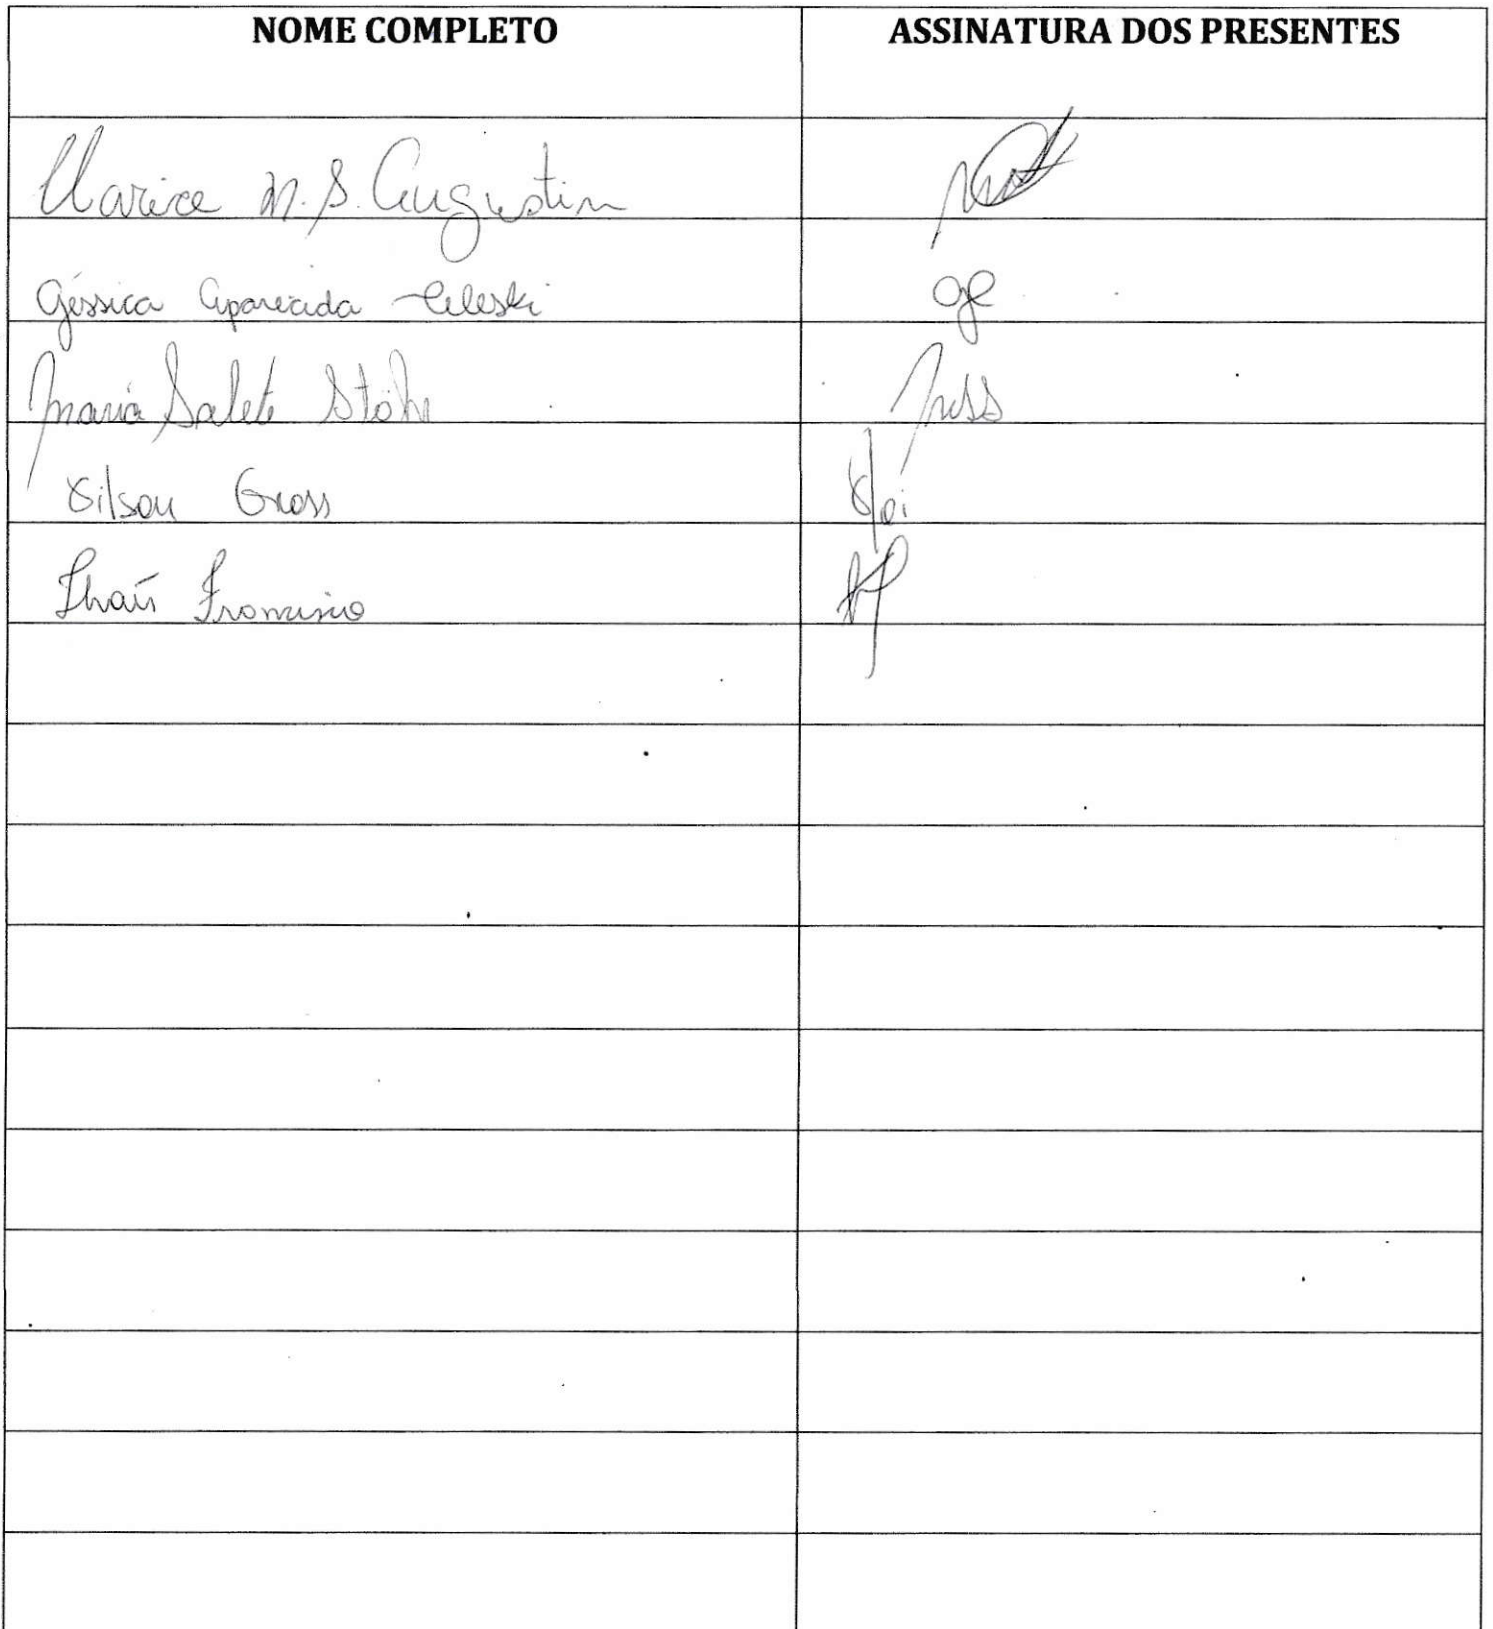 NOME COMPLETO ASSINATURA DOS PRESENTES
Clarice M. S. Augustin
Géssica Aparecida
Maria Salete Stöhr MSS
Gilson Gross
Thaís Francisco